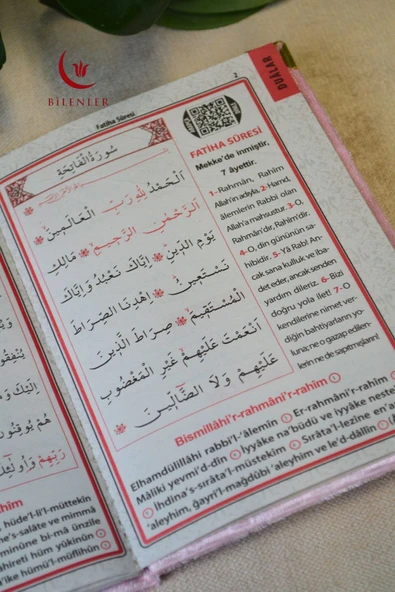 BİLENLER
Fatiha Sûresi
2
DUALAR
سُورَةُ الْفَاتِحَةِ
اَلْحَمْدُ لِلّٰهِ رَبِّ الْعَالَمِينَ
اَلرَّحْمٰنِ الرَّحِيمِ مَالِكِ
يَوْمِ الدِّينِ اِيَّاكَ نَعْبُدُ وَاِيَّاكَ
نَسْتَعِينُ اِهْدِنَا الصِّرَاطَ
الْمُسْتَقِيمَ صِرَاطَ الَّذِينَ
اَنْعَمْتَ عَلَيْهِمْ غَيْرِ الْمَغْضُوبِ
عَلَيْهِمْ وَلَا الضَّالِّينَ
FATİHA SÛRESİ
Mekke'de inmiştir,
7 âyettir.
1- Rahmân, Rahîm
Allah'ın adıyla. 2- Hamd,
âlemlerin Rabbi olan
Allah'a mahsustur. 3- O,
Rahmân'dır, Rahîm'dir.
4- O, din gününün sa-
hibidir. 5- Yâ Rab! An-
cak sana kulluk ve iba-
det eder, ancak senden
yardım dileriz. 6- Bizi
doğru yola ilet! 7- O
kendilerine nimet ver-
diğin bahtiyarların yo-
luna; ne o gazap edilen-
lerin ne de sapıtmışların!
Bismillâhi'r-rahmâni'r-rahîm
Elhamdülillâhi rabbi'l-'âlemîn Er-rahmâni'r-rahîm
Mâliki yevmi'd-dîn İyyâke na'büdü ve iyyâke neste
İhdina's-sırâta'l-müstekîm Sırâta'l-lezîne en'a
'aleyhim, ğayri'l-mağdûbi 'aleyhim ve le'd-dâllîn
رَبِّهِمْ وَاُولٰئِكَ
hîm
hüde'l-li'l-müttekîn
ne's-salâte ve mimmâ
minûne bi-mâ ünzile
âhireti hüm yûkinûn
'ike hümü'l-müflihûn